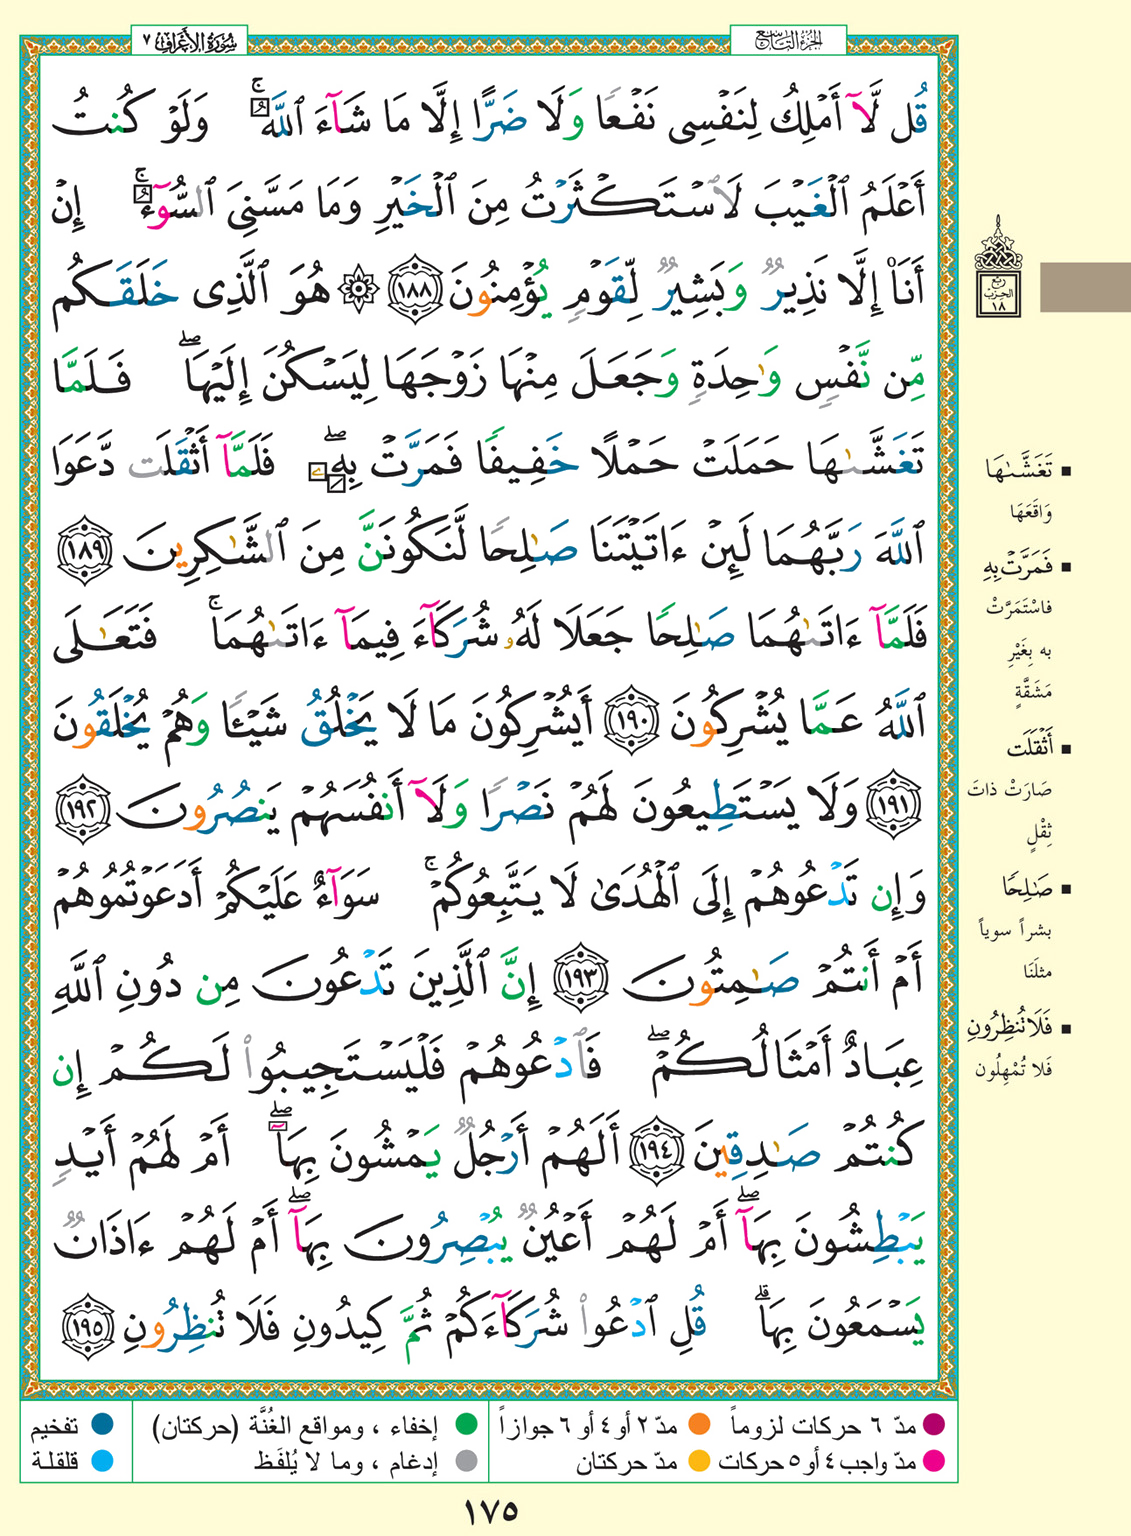 سُورَةُ الأَعْرَاف ٧
الجُزْءُ التَّاسِع
قُل لَّآ أَمْلِكُ لِنَفْسِى نَفْعًا وَلَا ضَرًّا إِلَّا مَا شَآءَ ٱللَّهُ ۚ وَلَوْ كُنتُ
أَعْلَمُ ٱلْغَيْبَ لَٱسْتَكْثَرْتُ مِنَ ٱلْخَيْرِ وَمَا مَسَّنِىَ ٱلسُّوٓءُ ۚ إِنْ
أَنَا۠ إِلَّا نَذِيرٌ وَبَشِيرٌ لِّقَوْمٍ يُؤْمِنُونَ ١٨٨ ۞ هُوَ ٱلَّذِى خَلَقَكُم
مِّن نَّفْسٍ وَٰحِدَةٍ وَجَعَلَ مِنْهَا زَوْجَهَا لِيَسْكُنَ إِلَيْهَا ۖ فَلَمَّا
تَغَشَّىٰهَا حَمَلَتْ حَمْلًا خَفِيفًا فَمَرَّتْ بِهِۦ ۖ فَلَمَّآ أَثْقَلَت دَّعَوَا
ٱللَّهَ رَبَّهُمَا لَئِنْ ءَاتَيْتَنَا صَـٰلِحًا لَّنَكُونَنَّ مِنَ ٱلشَّـٰكِرِينَ ١٨٩
فَلَمَّآ ءَاتَىٰهُمَا صَـٰلِحًا جَعَلَا لَهُۥ شُرَكَآءَ فِيمَآ ءَاتَىٰهُمَا ۚ فَتَعَـٰلَى
ٱللَّهُ عَمَّا يُشْرِكُونَ ١٩٠ أَيُشْرِكُونَ مَا لَا يَخْلُقُ شَيْـًٔا وَهُمْ يُخْلَقُونَ
١٩١ وَلَا يَسْتَطِيعُونَ لَهُمْ نَصْرًا وَلَآ أَنفُسَهُمْ يَنصُرُونَ ١٩٢
وَإِن تَدْعُوهُمْ إِلَى ٱلْهُدَىٰ لَا يَتَّبِعُوكُمْ ۚ سَوَآءٌ عَلَيْكُمْ أَدَعَوْتُمُوهُمْ
أَمْ أَنتُمْ صَـٰمِتُونَ ١٩٣ إِنَّ ٱلَّذِينَ تَدْعُونَ مِن دُونِ ٱللَّهِ
عِبَادٌ أَمْثَالُكُمْ ۖ فَٱدْعُوهُمْ فَلْيَسْتَجِيبُوا۟ لَكُمْ إِن
كُنتُمْ صَـٰدِقِينَ ١٩٤ أَلَهُمْ أَرْجُلٌ يَمْشُونَ بِهَآ ۖ أَمْ لَهُمْ أَيْدٍ
يَبْطِشُونَ بِهَآ ۖ أَمْ لَهُمْ أَعْيُنٌ يُبْصِرُونَ بِهَآ ۖ أَمْ لَهُمْ ءَاذَانٌ
يَسْمَعُونَ بِهَا ۗ قُلِ ٱدْعُوا۟ شُرَكَآءَكُمْ ثُمَّ كِيدُونِ فَلَا تُنظِرُونِ ١٩٥
رُبْع
الحِزْب
١٨
▪ تَغَشَّىٰهَا
وَاقَعَهَا
▪ فَمَرَّتْ بِهِ
فاسْتَمَرَّتْ
به بِغَيْرِ
مَشَقَّةٍ
▪ أَثْقَلَت
صَارَتْ ذاتَ
ثِقْلٍ
▪ صَـٰلِحًا
بشراً سوياً
مثلَنَا
▪ فَلَا تُنظِرُونِ
فَلا تُمْهِلُون
مدّ ٦ حركات لزوماً مدّ ٢ أو ٤ أو ٦ جوازاً إخفاء ، ومواقع الغُنَّة (حركتان) تفخيم
مدّ واجب ٤ أو ٥ حركات مدّ حركتان إدغام ، وما لا يُلفَظ قلقلة
١٧٥